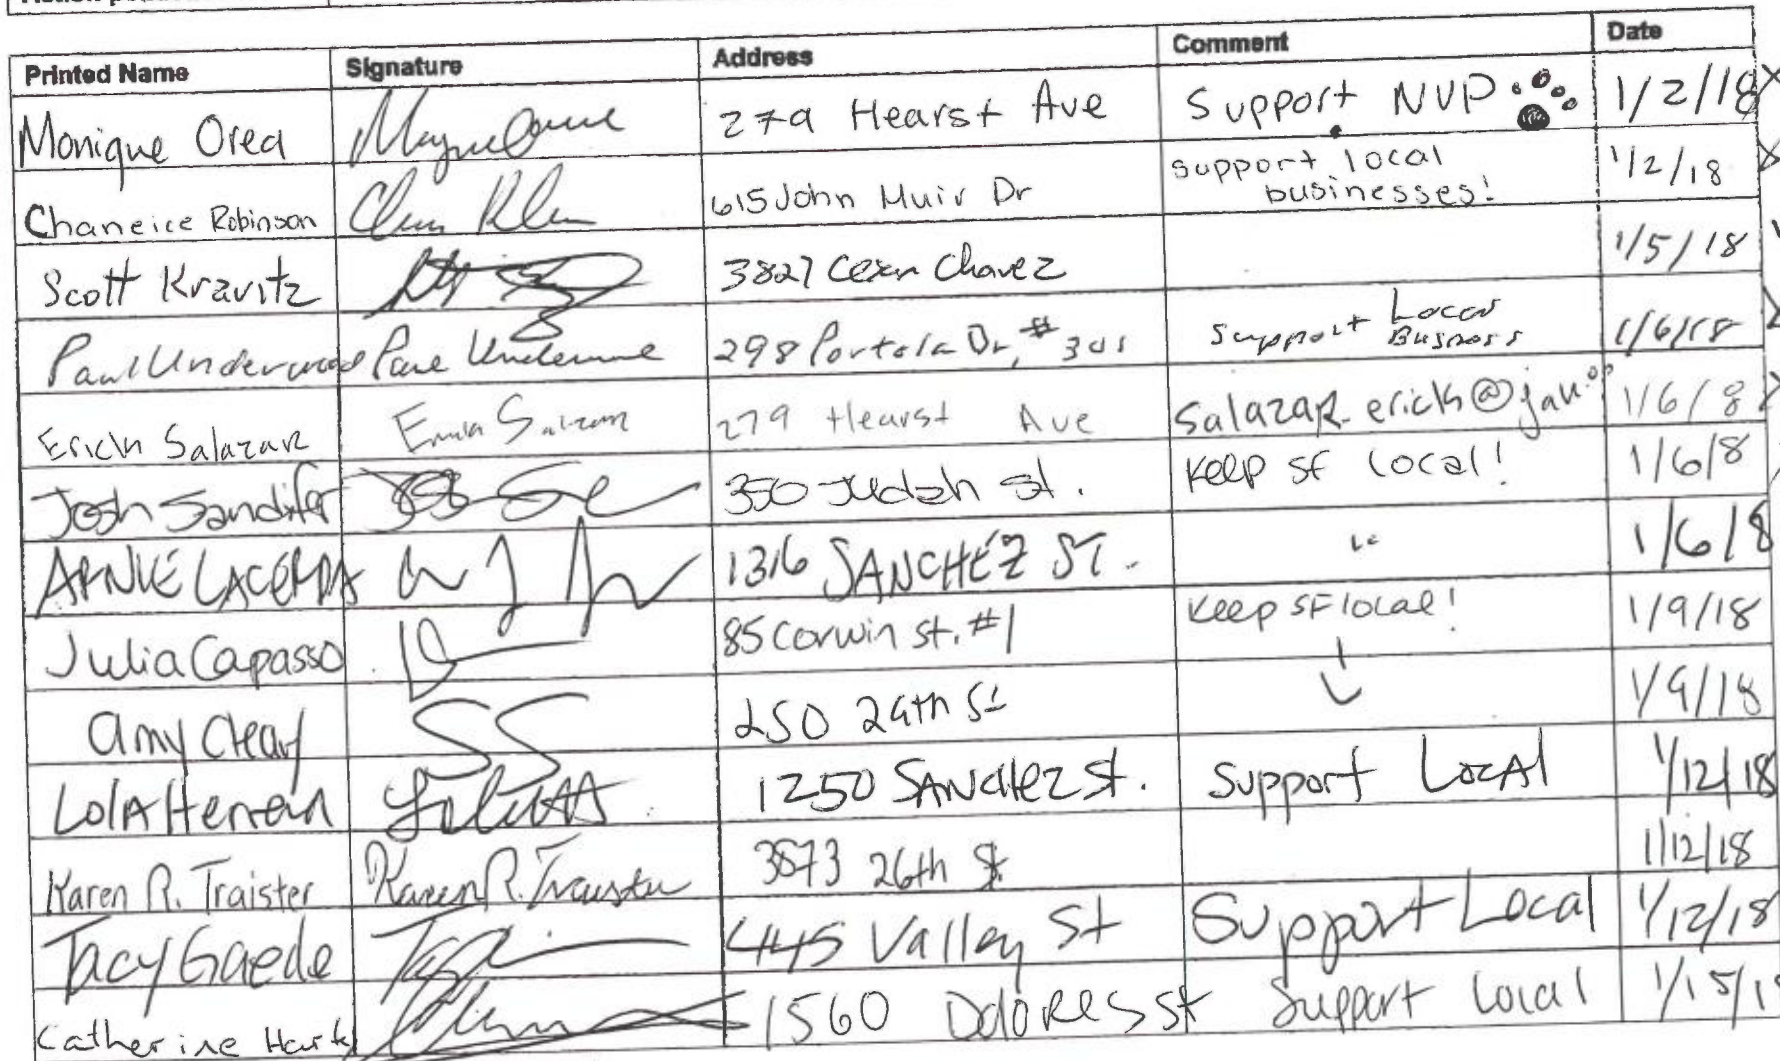 Printed Name Signature Address Comment Date
Monique Orea 279 Hearst Ave Support NVP 1/2/18
Chaneice Robinson 615 John Muir Dr support local businesses! 1/2/18
Scott Kravitz 3827 Cesar Chavez 1/5/18
Paul Underwood Paul Underwood 298 Portola Dr, # 301 Support Local Business 1/6/18
Erick Salazar 279 Hearst Ave Salazar.erick@ 1/6/8
Josh Sandifer 350 Judah st. Keep SF local! 1/6/8
ARNIE LACERDA 1316 SANCHEZ ST. " 1/6/8
Julia Capasso 85 Corwin st. #1 Keep SF local! 1/9/18
Amy Cleary 250 24th St 1/9/18
Lola Herrera 1250 SANCHEZ St. Support LocAl 1/12/18
Karen R. Traister Karen R. Traister 3873 26th St 1/12/18
Tacy Gaede 445 Valley St Support Local 1/12/18
Catherine 1560 DoloRes St Support Local 1/15/1